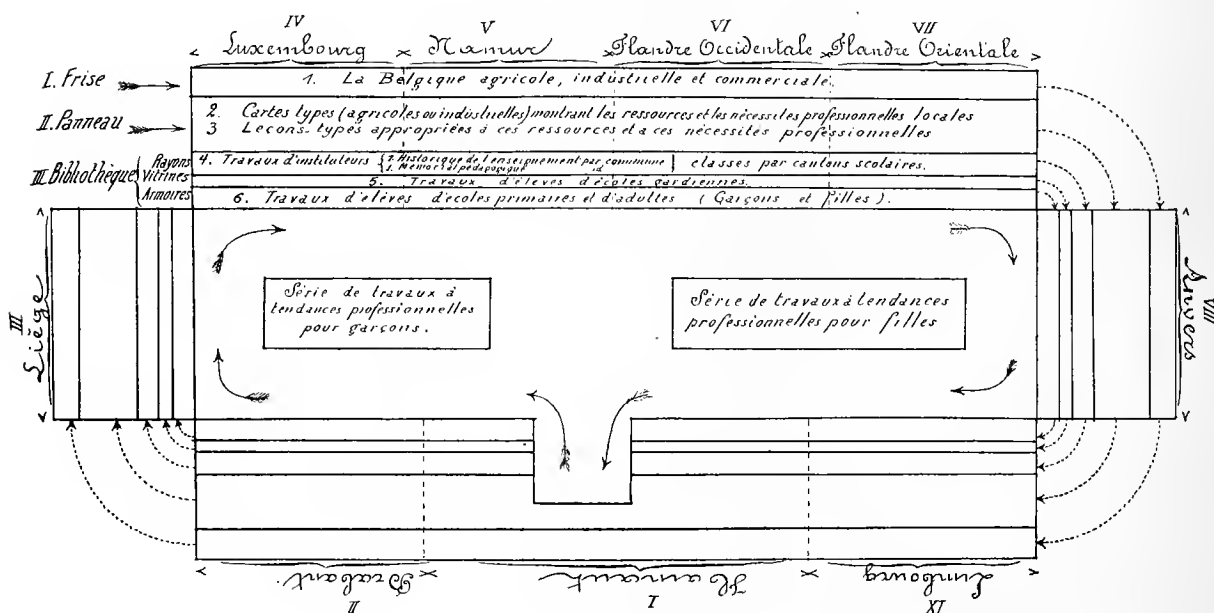 IV V VI VII
Luxembourg Namur Flandre Occidentale Flandre Orientale
I. Frise
1. La Belgique agricole, industrielle et commerciale.
II. Panneau
2. Cartes types (agricoles ou industrielles) montrant les ressources et les nécessités professionnelles locales
3 Leçons-types appropriées à ces ressources et a ces nécessités professionnelles
III. Bibliothèque
Rayons
Vitrines
Armoires
4. Travaux d'instituteurs
1. Historique de l'enseignement par commune
2. Mémorial pédagogique id
classés par cantons scolaires.
5. Travaux d'élèves d'écoles gardiennes.
6. Travaux d'élèves d'écoles primaires et d'adultes (Garçons et filles).
III
Liége
Série de travaux à
tendances professionnelles
pour garçons.
Série de travaux à tendances
professionnelles pour filles
VIII
Anvers
Brabant. Hainaut Limbourg
II I XI